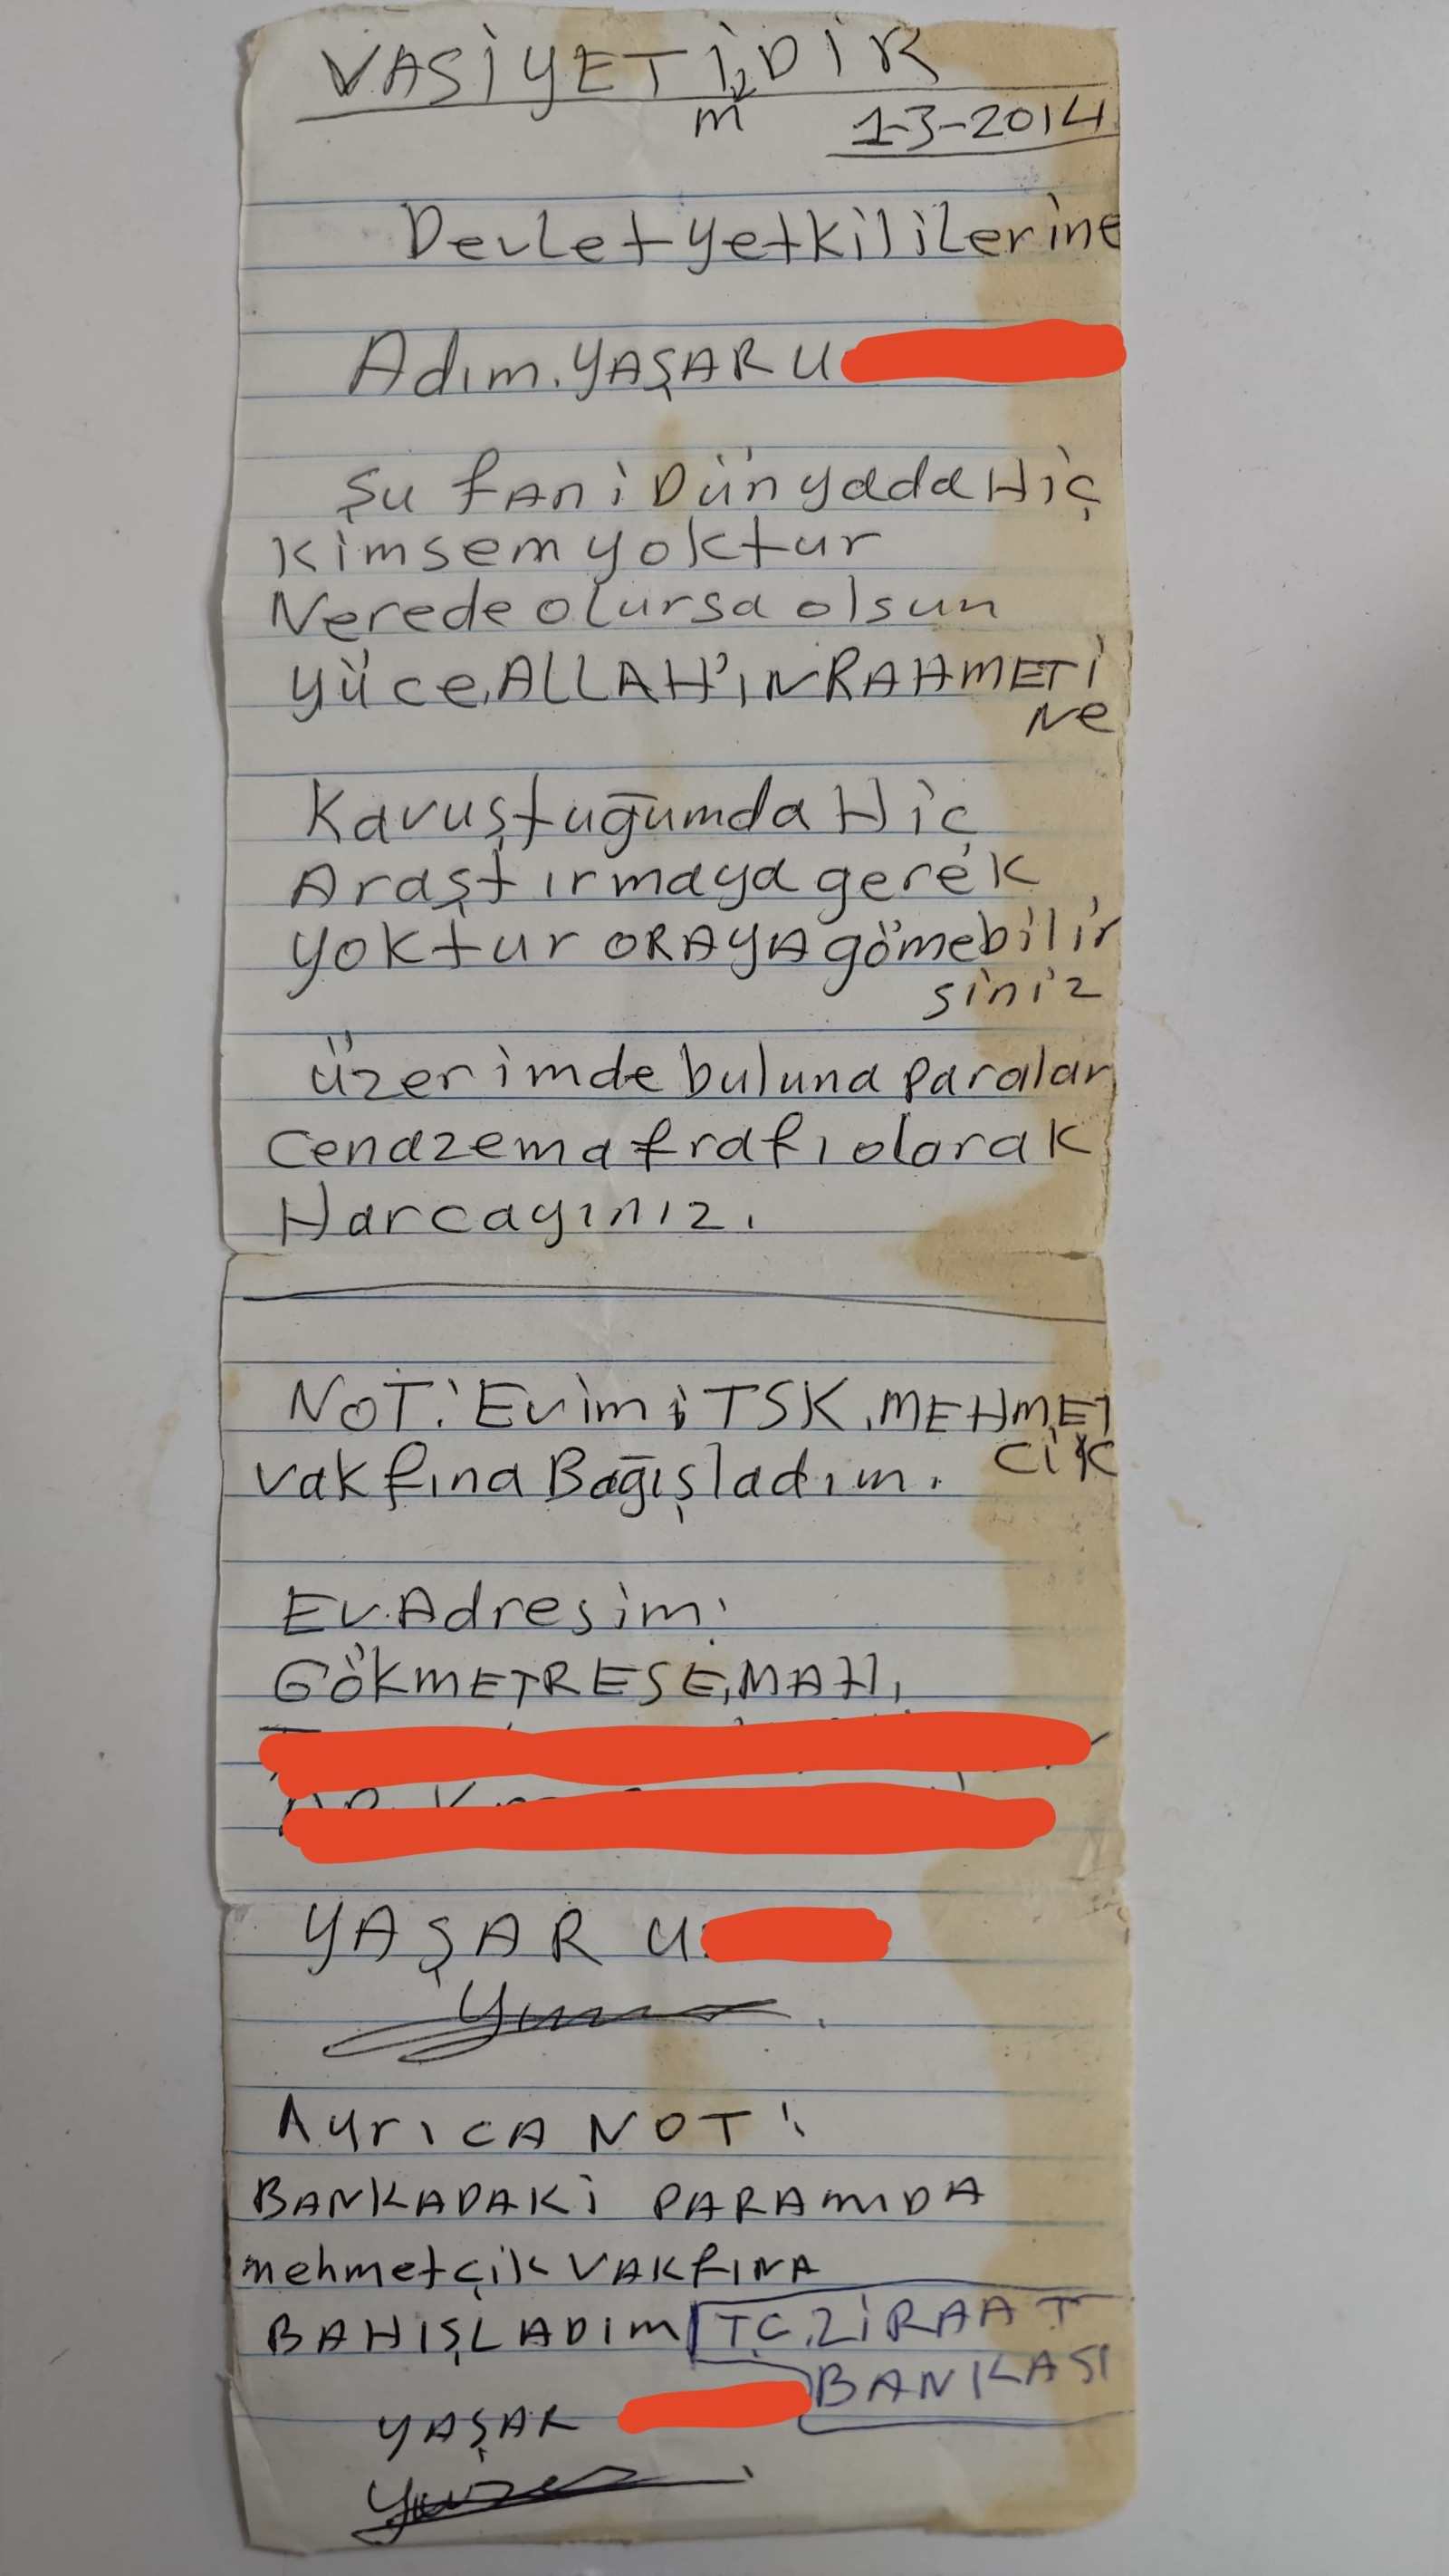 VASİYETİMDİR
1-3-2014
Devlet yetkililerine
Adım. YAŞAR U
Şu fani Dünyada Hiç
kimsem yoktur
Nerede olursa olsun
yüce, ALLAH'IN RAHMETİ
Ne
Kavuştuğumda Hiç
Araştırmaya gerek
yoktur ORAYA gömebilir
siniz
üzerimde buluna paralar
Cenazemafrafı olarak
Harcayınız.
NOT: Evimi TSK. MEHMET
CİK
vakfına Bağışladım.
Ev. Adresim:
GÖKMETRESE, MAH,
YAŞAR U
Ayrıca NOT:
BANKADAKİ PARAMIDA
mehmetçik VAKfINA
BAHIŞLADIM T.C. ZİRAAT
BANKASI
YAŞAR